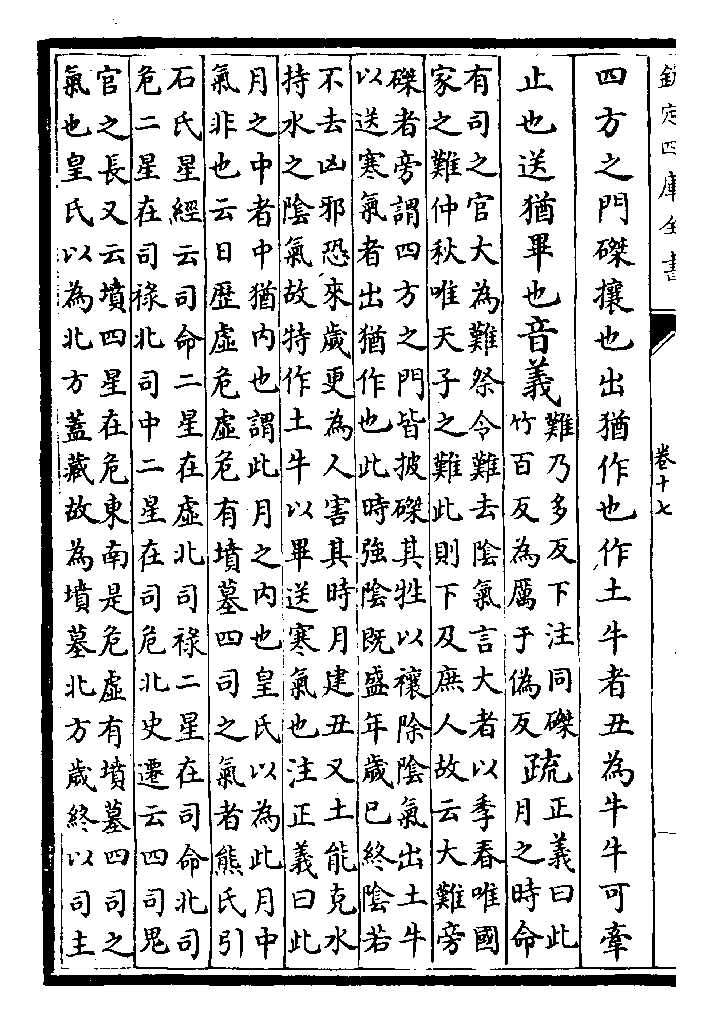 欽定四庫全書
卷十七
四方之門磔攘也出猶作也作土牛者丑為牛牛可牽
止也送猶畢也音義難乃多反下注同磔
竹百反為厲于偽反疏正義曰此
月之時命
有司之官大為難祭令難去陰氣言大者以季春唯國
家之難仲秋唯天子之難此則下及庶人故云大難旁
磔者旁謂四方之門皆披磔其牲以禳除陰氣出土牛
以送寒氣者出猶作也此時強陰既盛年歲已終陰若
不去凶邪恐來歲更為人害其時月建丑又土能克水
持水之陰氣故特作土牛以畢送寒氣也注正義曰此
月之中者中猶內也謂此月之內也皇氏以為此月中
氣非也云日歷虛危虛危有墳墓四司之氣者熊氏引
石氏星經云司命二星在虛北司祿二星在司命北司
危二星在司祿北司中二星在司危北史遷云四司鬼
官之長又云墳四星在危東南是危虛有墳墓四司之
氣也皇氏以為北方蓋藏故為墳墓北方歲終以司主